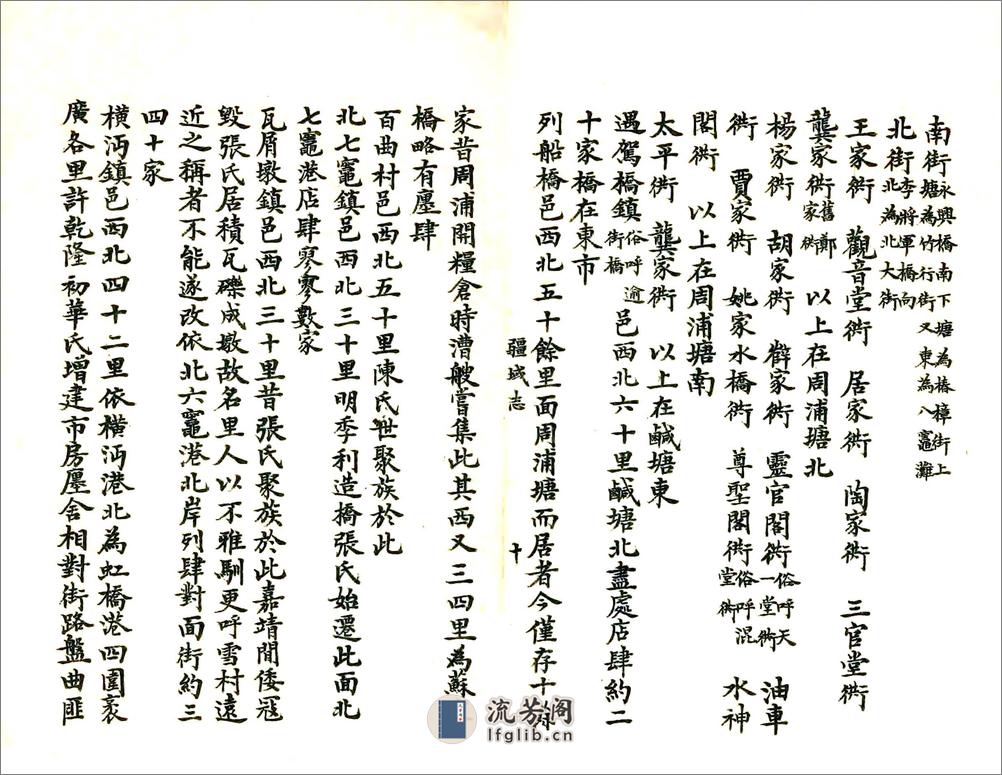 南街永興橋南下塘為椿樟街上塘為竹行街又東為八竈灘
北街李將軍橋向北為北大街
王家衖　觀音堂衖　居家衖　陶家衖　三官堂衖
龔家衖舊鄭家衖　以上在周浦塘北
楊家衖　胡家衖　辥家衖　靈官閣衖俗呼天一堂衖　油車
衖　賈家衖　姚家水橋衖　尊聖閣衖俗呼混堂衖　水神
閣衖　以上在周浦塘南
太平衖　龔家衖　以上在鹹塘東
遇駕橋鎮俗呼逾街橋邑西北六十里鹹塘北盡處店肆約二
十家橋在東市
列船橋邑西北五十餘里面周浦塘而居者今僅存十餘
疆域志
十
家昔周浦開糧倉時漕艘嘗集此其西又三四里為蘇
橋略有廛肆
百曲村邑西北五十里陳氏世聚族於此
北七竈鎮邑西北三十里明季利造橋張氏始遷此面北
七竈港店肆寥寥數家
瓦屑墩鎮邑西北三十里昔張氏聚族於此嘉靖間倭寇
毀張氏居積瓦礫成墩故名里人以不雅馴更呼雪村遠
近之稱者不能遂改依北六竈港北岸列肆對面街約三
四十家
橫沔鎮邑西北四十二里依橫沔港北為虹橋港四圍袤
廣各里許乾隆初華氏增建市房廛舍相對街路盤曲匪
流芳阁
lfglib.cn